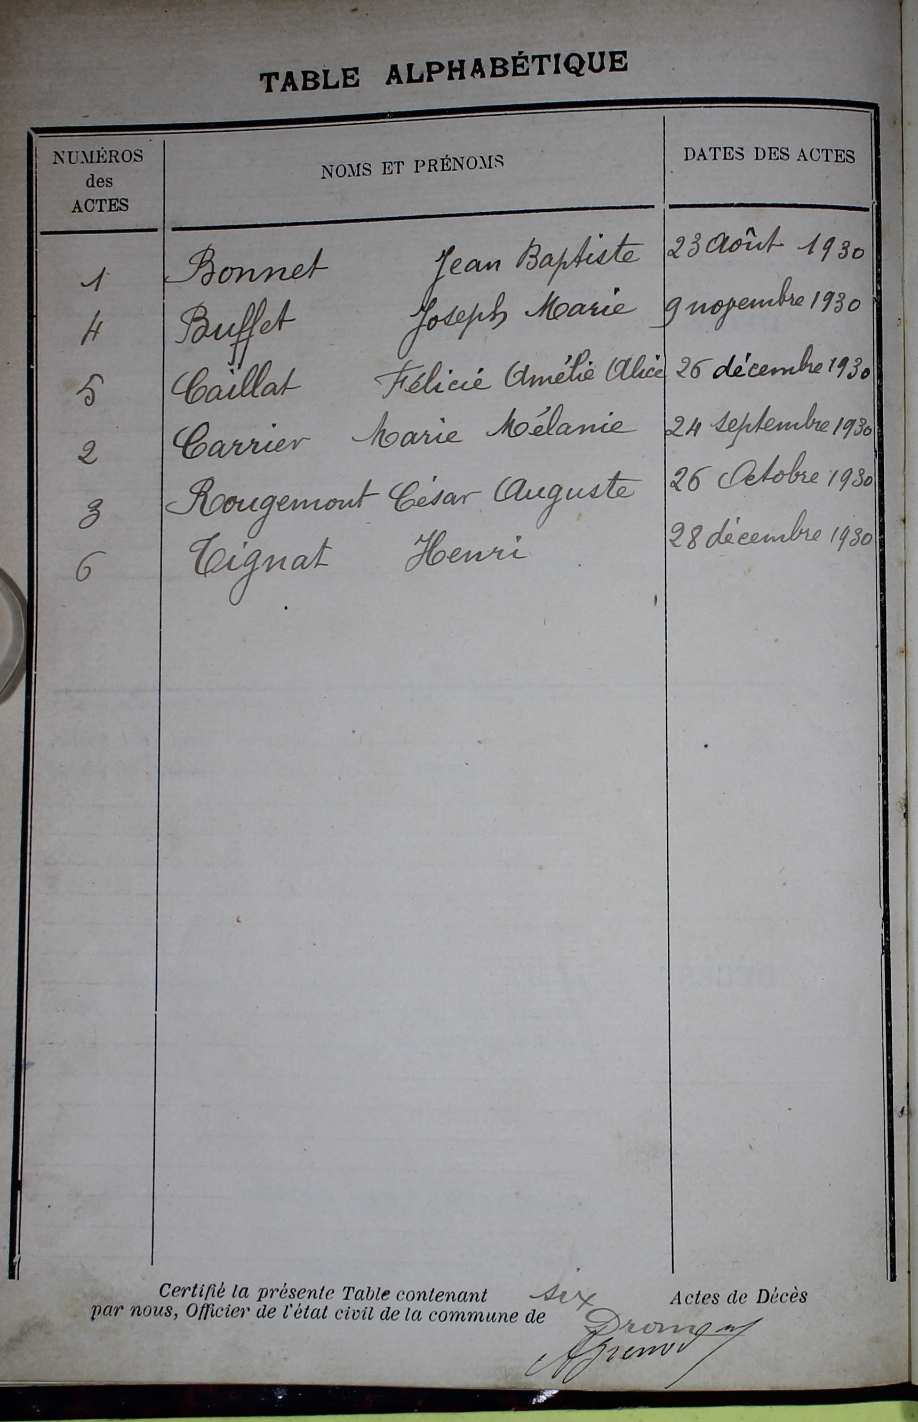 TABLE ALPHABÉTIQUE
NUMÉROS
des
ACTES
NOMS ET PRÉNOMS
DATES DES ACTES
1 Bonnet Jean Baptiste 23 Août 1930
4 Buffet Joseph Marie 9 novembre 1930
5 Caillat Félicie Amélie Alice 26 décembre 1930
2 Carrier Marie Mélanie 24 septembre 1930
3 Rougemont César Auguste 26 Octobre 1930
6 Tignat Henri 28 décembre 1930
Certifié la présente Table contenant six Actes de Décès
par nous, Officier de l'état civil de la commune de